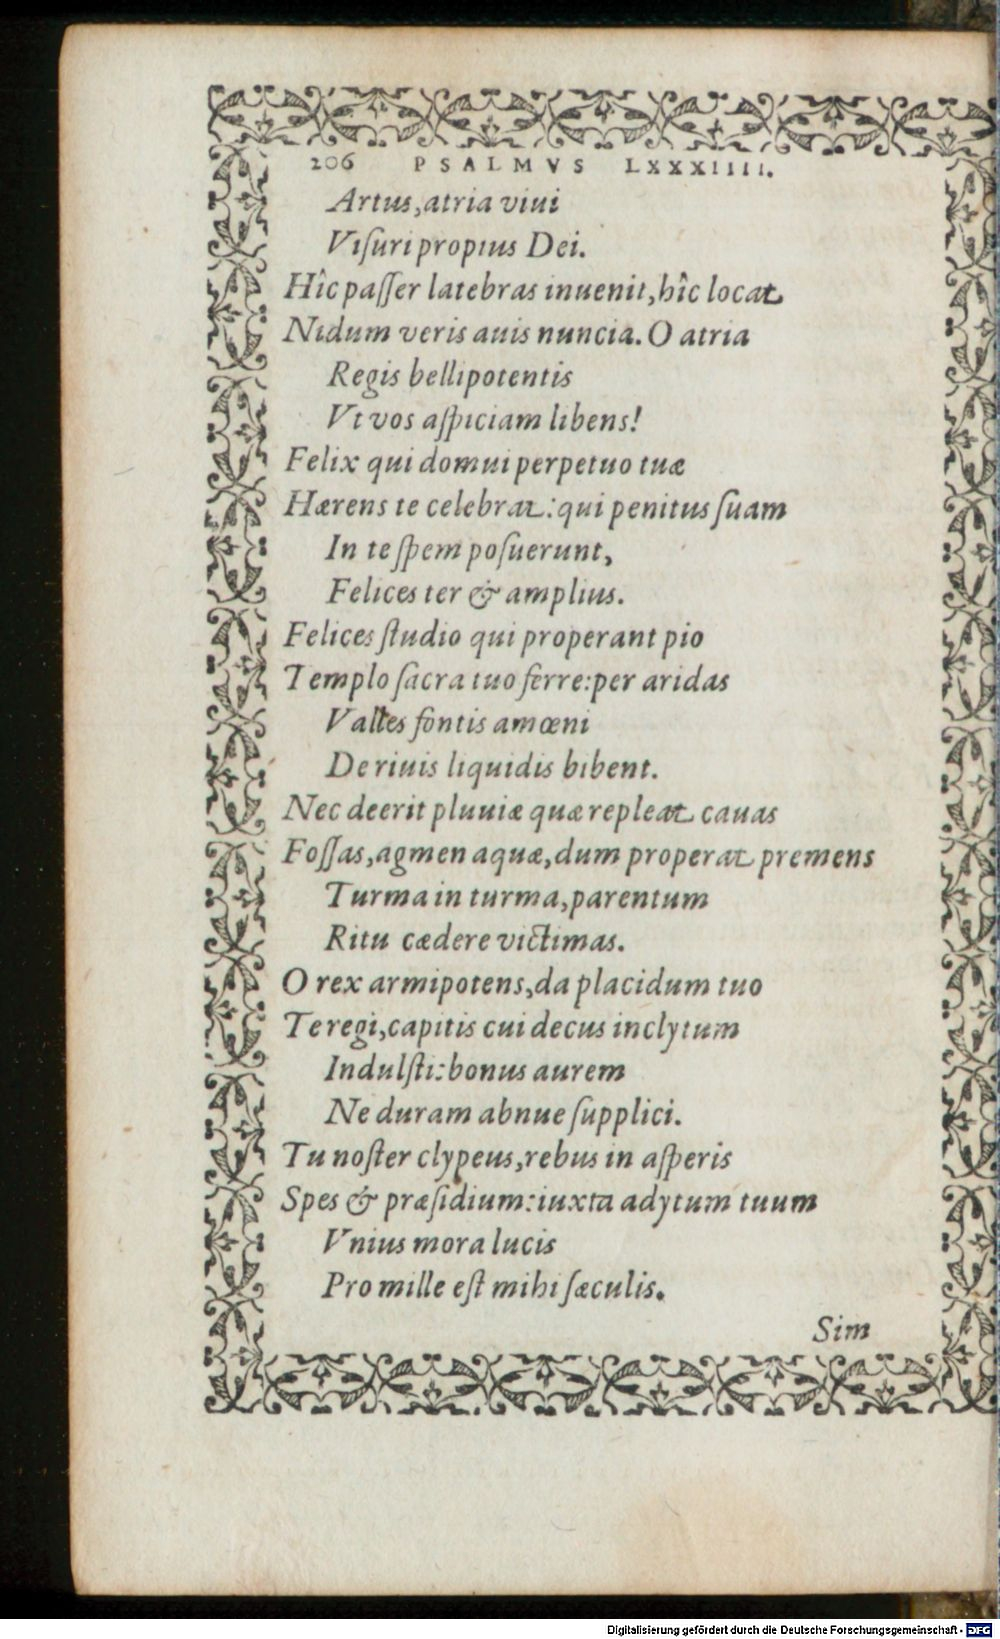 206 PSALMVS LXXXIIII.
Artus, atria viui
Viſuri propius Dei.
Hîc paſſer latebras inuenit, hîc locat
Nidum veris auis nuncia. O atria
Regis bellipotentis
Vt vos aſpiciam libens!
Felix qui domui perpetuo tuæ
Hærens te celebrat: qui penitus ſuam
In te ſpem poſuerunt,
Felices ter & amplius.
Felices ſtudio qui properant pio
Templo ſacra tuo ferre: per aridas
Valles fontis amœni
De riuis liquidis bibent.
Nec deerit pluuiæ quæ repleat cauas
Foſſas, agmen aquæ, dum properat premens
Turma in turma, parentum
Ritu cædere victimas.
O rex armipotens, da placidum tuo
Te regi, capitis cui decus inclytum
Indulſti: bonus aurem
Ne duram abnue ſupplici.
Tu noſter clypeus, rebus in aſperis
Spes & præſidium: iuxta adytum tuum
Vnius mora lucis
Pro mille eſt mihi ſæculis.
Sim
Digitalisierung gefördert durch die Deutsche Forschungsgemeinschaft - DFG